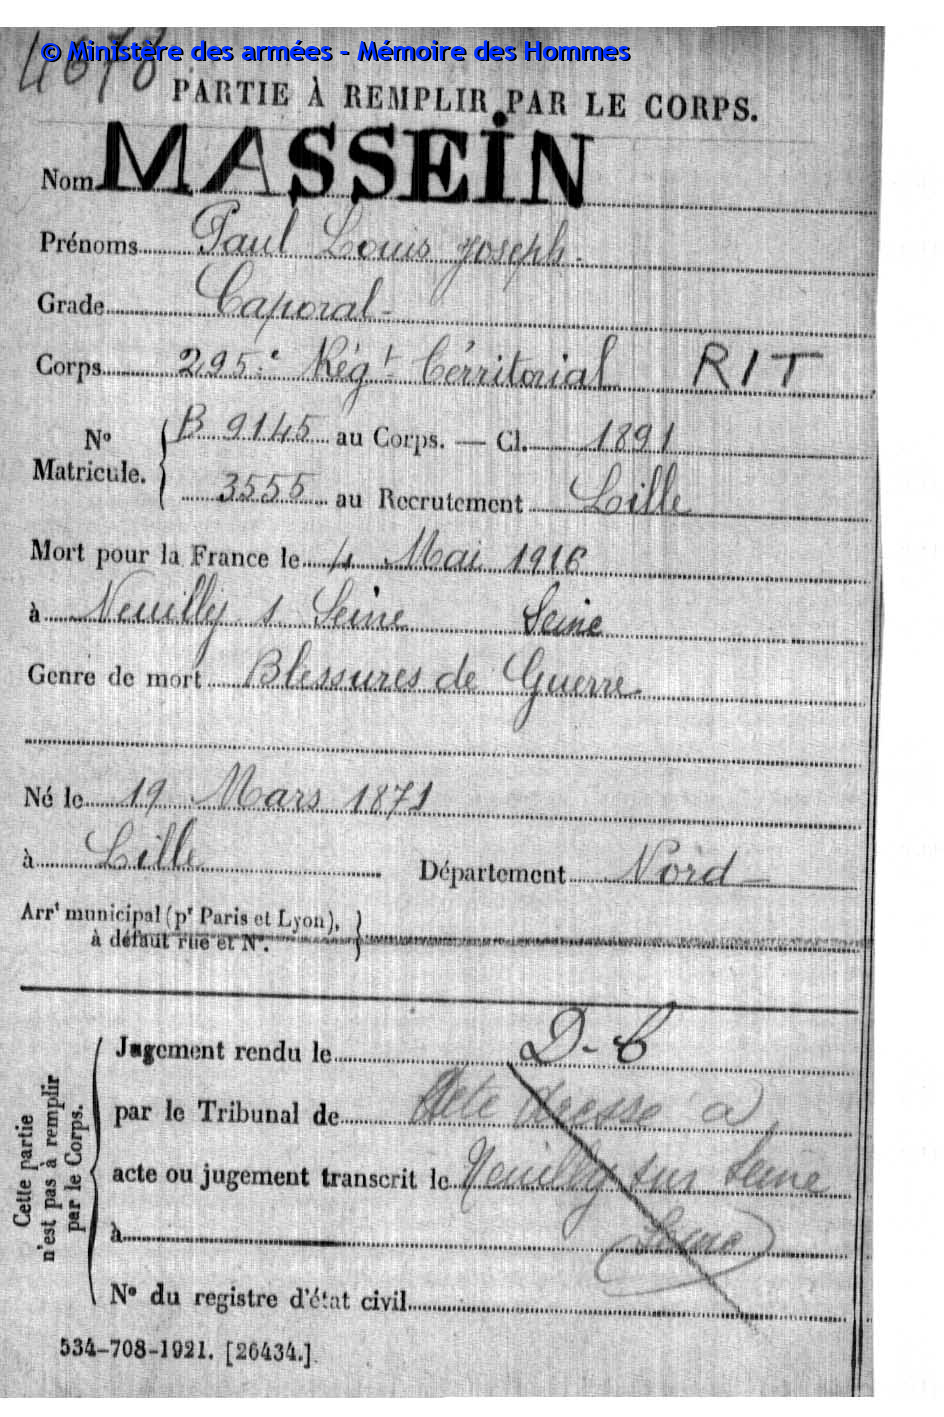 © Ministère des armées - Mémoire des Hommes
4678
PARTIE À REMPLIR PAR LE CORPS.
Nom MASSEIN
Prénoms Paul Louis Joseph
Grade Caporal
Corps 295e Régt Térritorial RIT
No Matricule. { B 9145 au Corps. — Cl. 1891
3555 au Recrutement Lille
Mort pour la France le 4 Mai 1916
à Neuilly s Seine Seine
Genre de mort Blessures de Guerre
Né le 19 Mars 1871
à Lille Département Nord
Arrt municipal (pr Paris et Lyon), à défaut rue et No. }
Cette partie n'est pas à remplir par le Corps.
Jugement rendu le D-C
par le Tribunal de Acte dressé à
acte ou jugement transcrit le Neuilly sur Seine
à Seine
No du registre d'état civil
534-708-1921. [26434.]